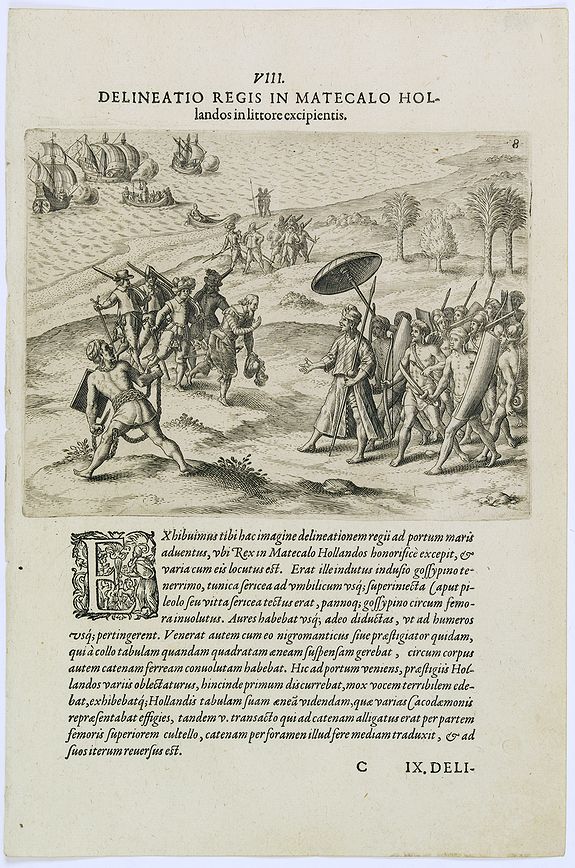 VIII.
DELINEATIO REGIS IN MATECALO HOL-
landos in littore excipientis.
8
EXhibuimus tibi hac imagine delineationem regii ad portum maris
aduentus, vbi Rex in Matecalo Hollandos honorificè excepit, &
varia cum eis locutus est. Erat ille indutus indusio gossypino te-
nerrimo, tunica sericea ad vmbilicum vsq; superiniecta (caput pi-
leolo seu vitta sericea tectus erat, pannoq; gossypino circum femo-
ra inuolutus. Aures habebat vsq; adeo diductas, vt ad humeros
vsq; pertingerent. Venerat autem cum eo nigromanticus siue præstigiator quidam,
qui à collo tabulam quandam quadratam æneam suspensam gerebat, circum corpus
autem catenam ferream conuolutam habebat. Hic ad portum veniens, præstigiis Hol-
landos variis oblectaturus, hinc inde primum discurrebat, mox vocem terribilem ede-
bat, exhibebatq; Hollandis tabulam suam æneã videndam, quæ varias Cacodæmonis
repræsentabat effigies, tandem v. transacto qui ad catenam alligatus erat per partem
femoris superiorem cultello, catenam per foramen illud fere mediam traduxit, & ad
suos iterum reuersus est.
C IX. DELI-